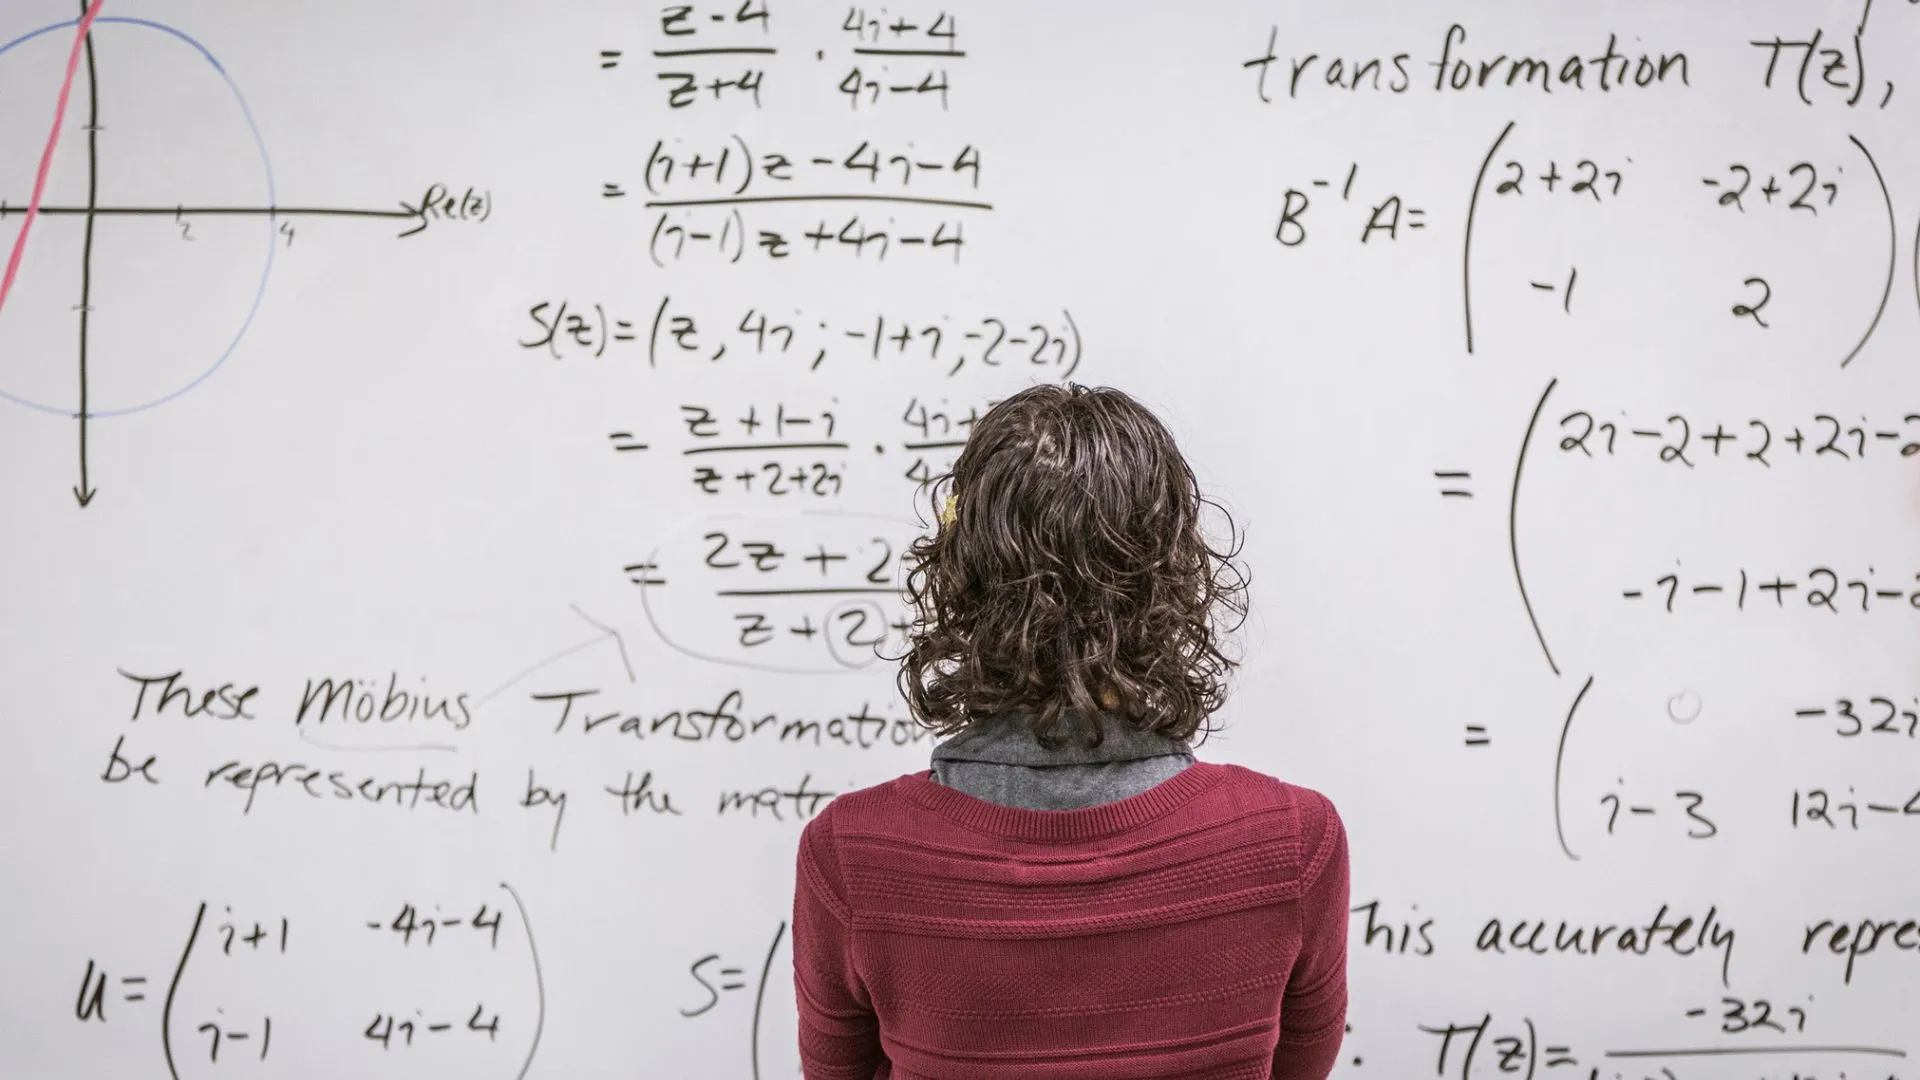 Re(z)
2 4
= z-4 / z+4 · 4i+4 / 4i-4
= (i+1)z-4i-4 / (i-1)z+4i-4
S(z)=(z, 4i; -1+i, -2-2i)
= z+1-i / z+2+2i · 4i+ / 4
= 2z+2 / z+2+
These Möbius Transformation
be represented by the matri
U= ( i+1 -4i-4
i-1 4i-4 )
S= (
transformation T(z),
B⁻¹A= ( 2+2i -2+2i
-1 2 ) (
= ( 2i-2+2+2i-2
-i-1+2i-2
= ( 0 -32i
i-3 12i-4
This accurately repre
T(z)= -32i